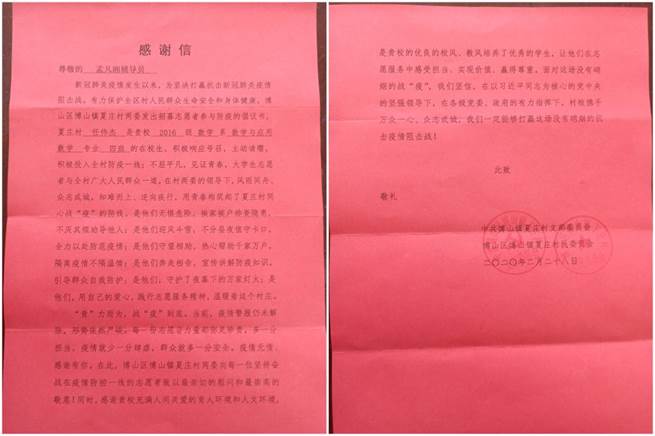 感谢信
尊敬的 孟凡刚辅导员
新冠肺炎疫情发生以来，为坚决打赢抗击新冠肺炎疫情
阻击战，有力保护全区村人民群众生命安全和身体健康，博
山区博山镇夏庄村两委发出招募志愿者参与防疫的倡议书。
夏庄村 任伟杰 是贵校 2016 级 数学 系 数学与应用
数学 专业 四班 的在校生，积极响应号召，主动请缨，
积极投入全村防疫一线；不惹平凡，见证青春，大学生志愿
者与全村广大人民群众一道，在村两委的领导下，风雨同舟、
众志成城，知难而上、逆向疾行，用青春构筑起了夏庄村同
心战“疫”的防线。是他们无惧危险，挨家挨户排查隐患，
不厌其烦劝导他人；是他们迎风斗雪，不分昼夜值守卡口，
全力以赴防范疫情；是他们守望相助，热心帮助千家万户，
隔离疫情不隔温情；是他们奔走相告，宣传讲解防疫知识，
引导群众自我防护；是他们，守护了夜幕下的万家灯火；是
他们，用自己的爱心，践行志愿服务精神，温暖着这个村庄。
“青”力而为，战“疫”到底。当前，疫情警报仍未解
除，形势依然严峻，每一份志愿者力量都弥足珍贵，多一分
担当，疫情就少一分肆虐，群众就多一分安全。疫情无情，
感谢有你。在此，博山区博山镇夏庄村两委向每一位坚持奋
战在疫情防控一线的志愿者致以最亲切的慰问和最崇高的
敬意！同时，感谢贵校充满人间关爱的育人环境和人文环境，
是贵校的优良的校风、教风培养了优秀的学生，让他们在志
愿服务中感受担当、实现价值、赢得尊重。面对这场没有硝
烟的战“疫”，我们坚信，在以习近平同志为核心的党中央
的坚强领导下，在各级党委、政府的有力指挥下，村校携手
万众一心、众志成城，我们一定能够打赢这场没有硝烟的抗
击疫情阻击战！
此致
敬礼
中共博山镇夏庄村支部委员会
博山区博山镇夏庄村民委员会
二〇二〇年二月二十八日